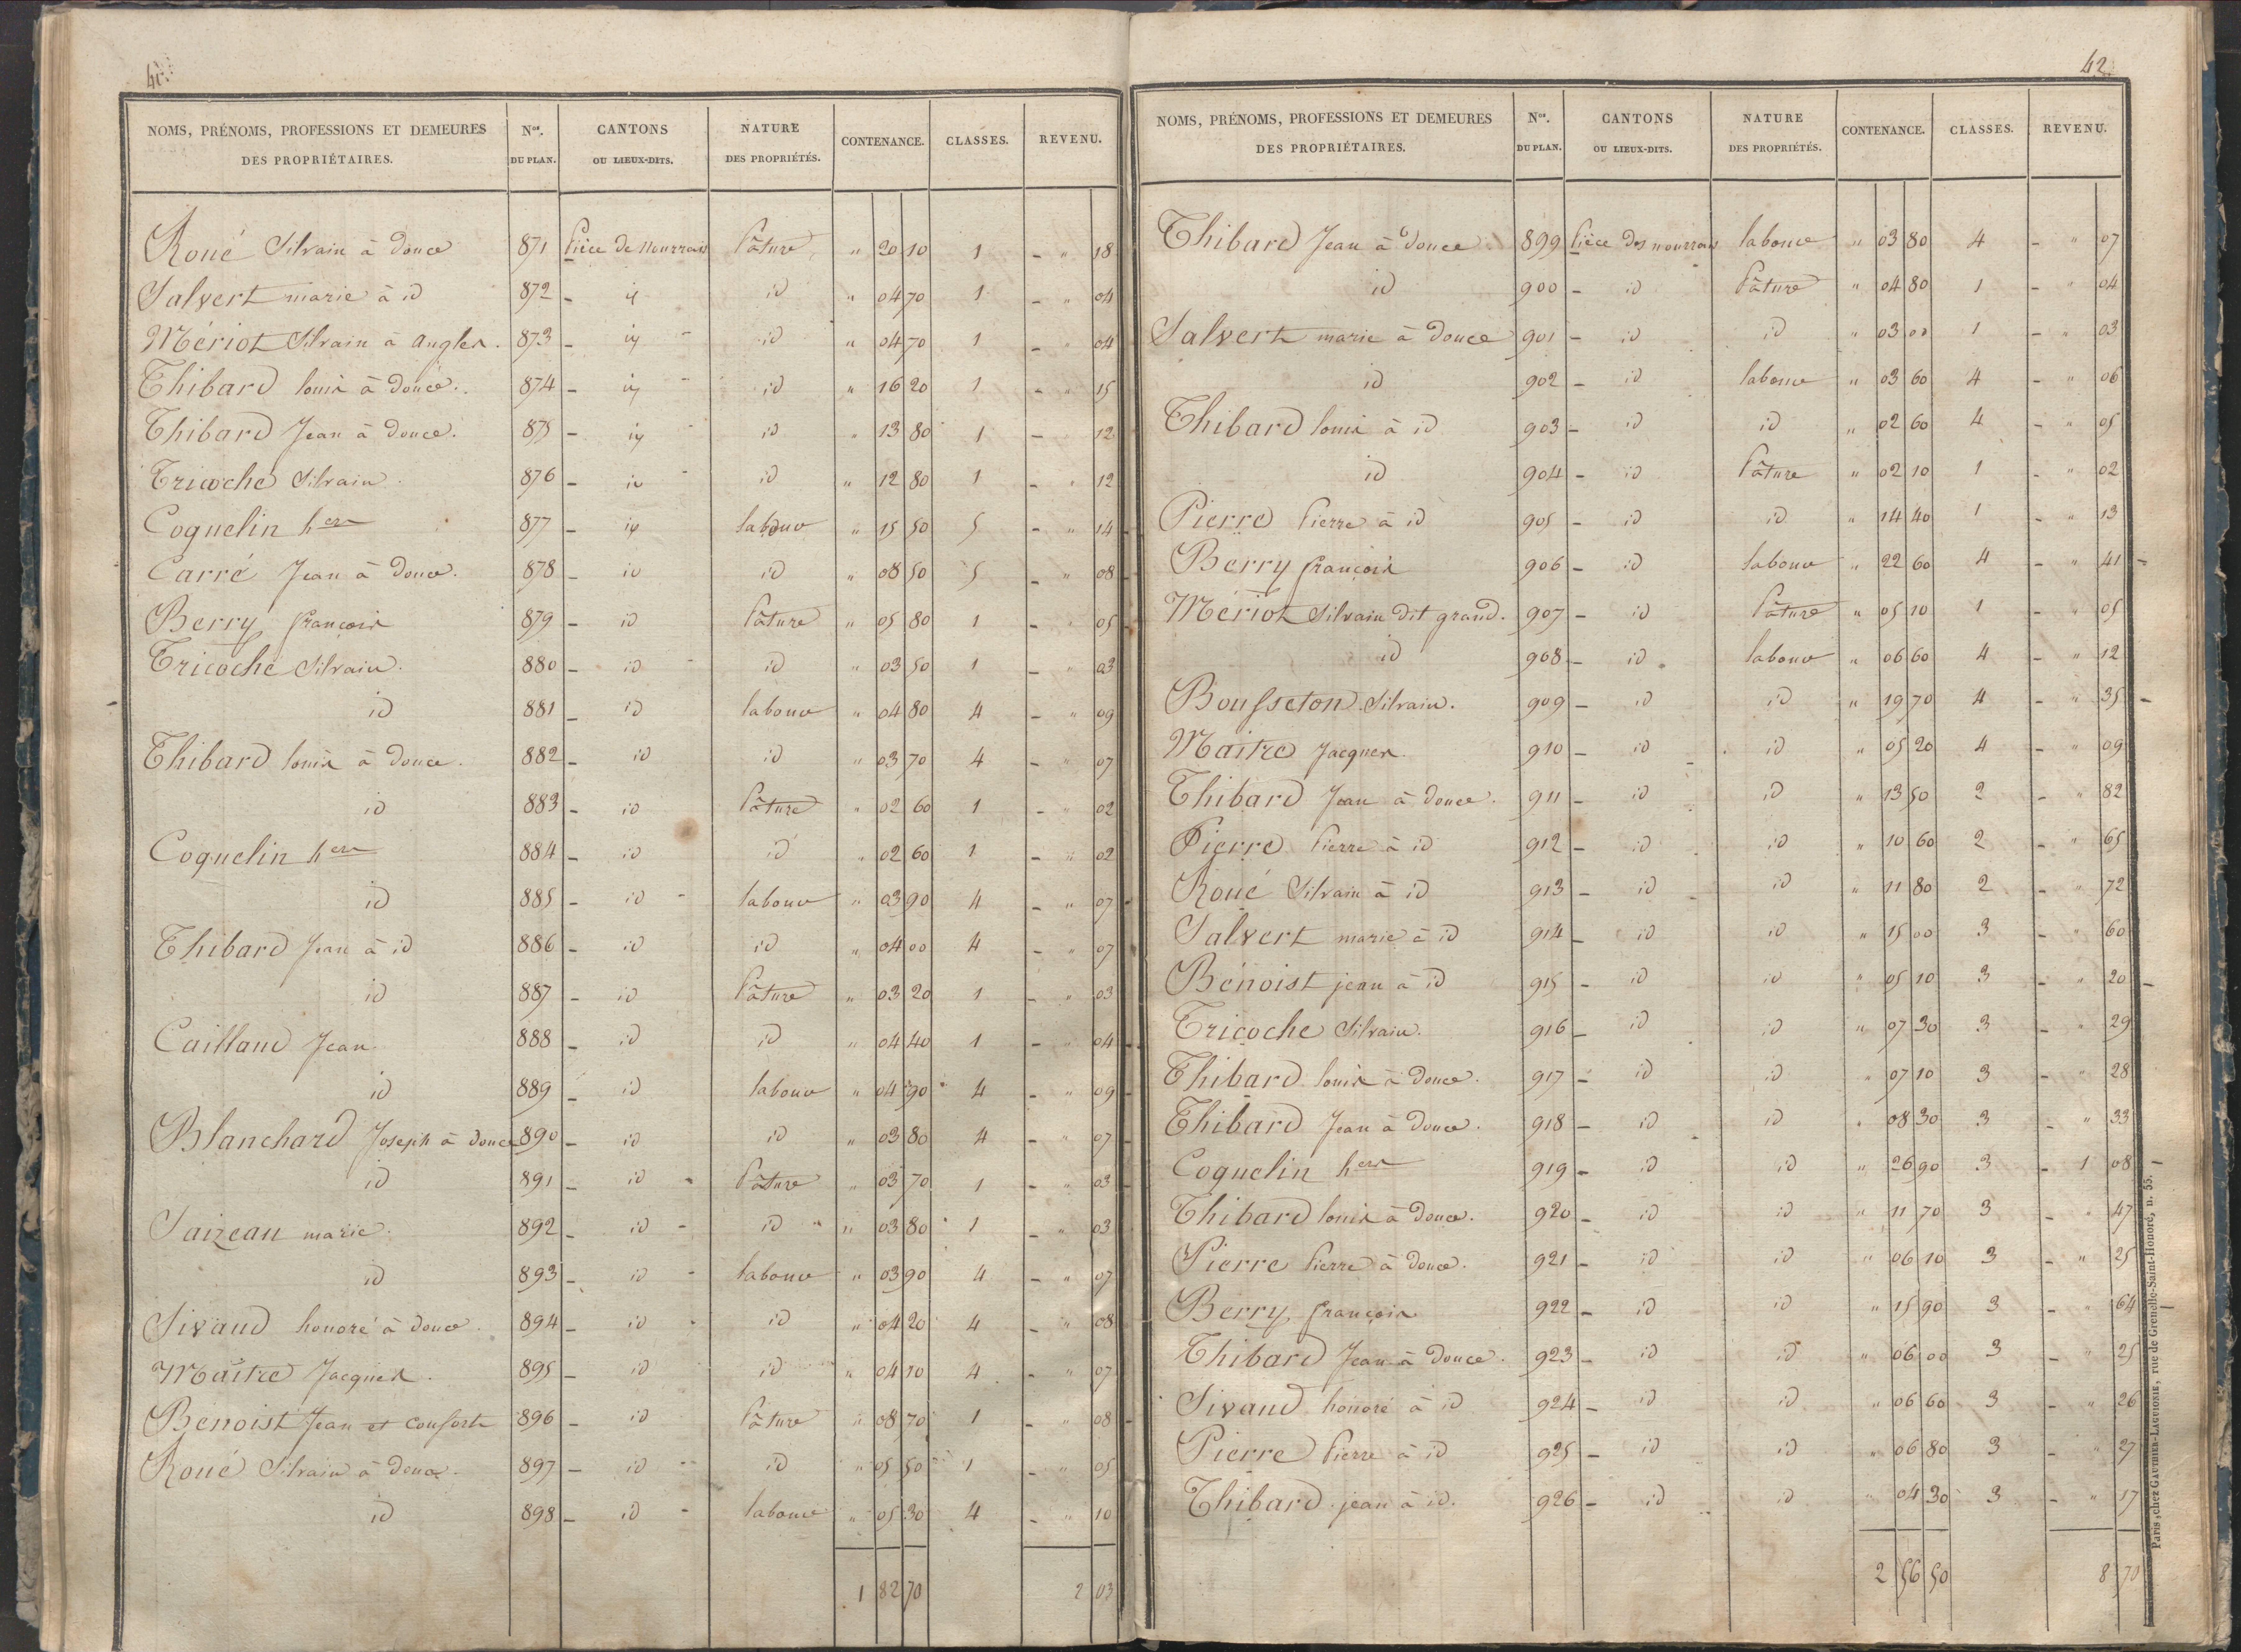 41.
NOMS, PRÉNOMS, PROFESSIONS ET DEMEURES DES PROPRIÉTAIRES. Nos. DU PLAN. CANTONS OU LIEUX-DITS. NATURE DES PROPRIÉTÉS. CONTENANCE. CLASSES. REVENU.
Roué Silvain à douce 871 Pièce de nourrais Pâture " 20 10 1 - " 18
Salvert marie à id 872 - id id " 04 70 1 - " 04
Mériot Silvain à angles. 873 - id - id " 04 70 1 - " 04
Thibard louis à douce. 874 - id - id " 16 20 1 - " 15
Thibard Jean à douce. 875 - id - id " 13 80 1 - 12
Tricoche Silvain. 876 - id - id " 12 80 1 - " 12
Coquelin hers 877 - id labour " 15 50 5 - " 14
Carré Jean à douce. 878 - id id " 08 50 5 - " 08
Berry françois 879 - id Pâture " 05 80 1 - " 05
Tricoche Silvain. 880 - id - id " 03 50 1 - 03
id 881 - id labour " 04 80 4 - " 09
Thibard louis à douce. 882 - id id " 03 70 4 - " 07
id 883 - id Pâture " 02 60 1 - " 02
Coquelin hers 884 - id id " 02 60 1 - " 02
id 885 - id - labour " 03 90 4 - " 07
Thibard Jean à id 886 - id id " 04 00 4 - " 07
id 887 - id Pâture " 03 20 1 - " 03
Caillaud Jean. 888 - id id " 04 40 1 - " 04
id 889 - id labour " 04 90 4 - " 09
Blanchard Joseph à douce 890 - id id " 03 80 4 - " 07
id 891 - id - Pâture " 03 70 1 - " 03
Saizeau marie. 892 - id - id " 03 80 1 - " 03
id 893 - id - labour " 03 90 4 - " 07
Sivaud honoré à douce. 894 - id - id " 04 20 4 - " 08
Maitre Jacques. 895 - id id " 04 10 4 - " 07
Benoist Jean et consorts 896 - id Pâture " 08 70 1 - " 08
Roué Silvain à douce. 897 - id - id " 05 50 1 - " 05
id 898 - id - labour " 05 30 4 - " 10
1 82 70 2 03
42.
NOMS, PRÉNOMS, PROFESSIONS ET DEMEURES DES PROPRIÉTAIRES. Nos. DU PLAN. CANTONS OU LIEUX-DITS. NATURE DES PROPRIÉTÉS. CONTENANCE. CLASSES. REVENU.
Thibard Jean à douce. 899 Pièce des nourrais labour " 03 80 4 - " 07
id 900 - id Pâture " 04 80 1 - " 04
Salvert marie à douce 901 - id id " 03 00 1 - " 03
id 902 - id labour " 03 60 4 - " 06
Thibard louis à id 903 - id id " 02 60 4 - " 05
id 904 - id Pâture " 02 10 1 - " 02
Pierre Pierre à id 905 - id id " 14 40 1 - " 13
Berry françois 906 - id labour " 22 60 4 - " 41 -
Mériot Silvain dit grand. 907 - id Pâture " 05 10 1 - " 05
id 908 - id labour " 06 60 4 - " 12
Bousseton Silvain. 909 - id id " 19 70 4 - " 35 -
Maitre Jacques. 910 - id id " 05 20 4 - " 09
Thibard Jean à douce. 911 - id id " 13 50 2 - " 82
Pierre Pierre à id 912 - id id " 10 60 2 - " 65
Roué Silvain à id 913 - id id " 11 80 2 - " 72
Salvert marie à id 914 - id id " 15 00 3 - " 60
Bénoist jean à id 915 - id id " 05 10 3 - " 20 -
Tricoche Silvain. 916 - id id " 07 30 3 - " 29
Thibard louis à douce. 917 - id id " 07 10 3 - " 28
Thibard Jean à douce. 918 - id id " 08 30 3 - " 33
Coquelin hers 919 - id id " 26 90 3 - 1 08 -
Thibard louis à douce. 920 - id id " 11 70 3 - " 47
Pierre Pierre à douce. 921 - id id " 06 10 3 - " 25
Berry françois. 922 - id id " 15 90 3 - " 64 -
Thibard Jean à douce. 923 - id id " 06 00 3 - " 25
Sivaud honoré à id 924 - id id " 06 60 3 - " 26
Pierre Pierre à id 925 - id id " 06 80 3 - " 27
Thibard jean à id. 926 - id id " 04 30 3 - " 17
2 56 50 8 70
Paris, chez GAUTHIER-LAGUIONIE, rue de Grenelle-Saint-Honoré, n. 55.